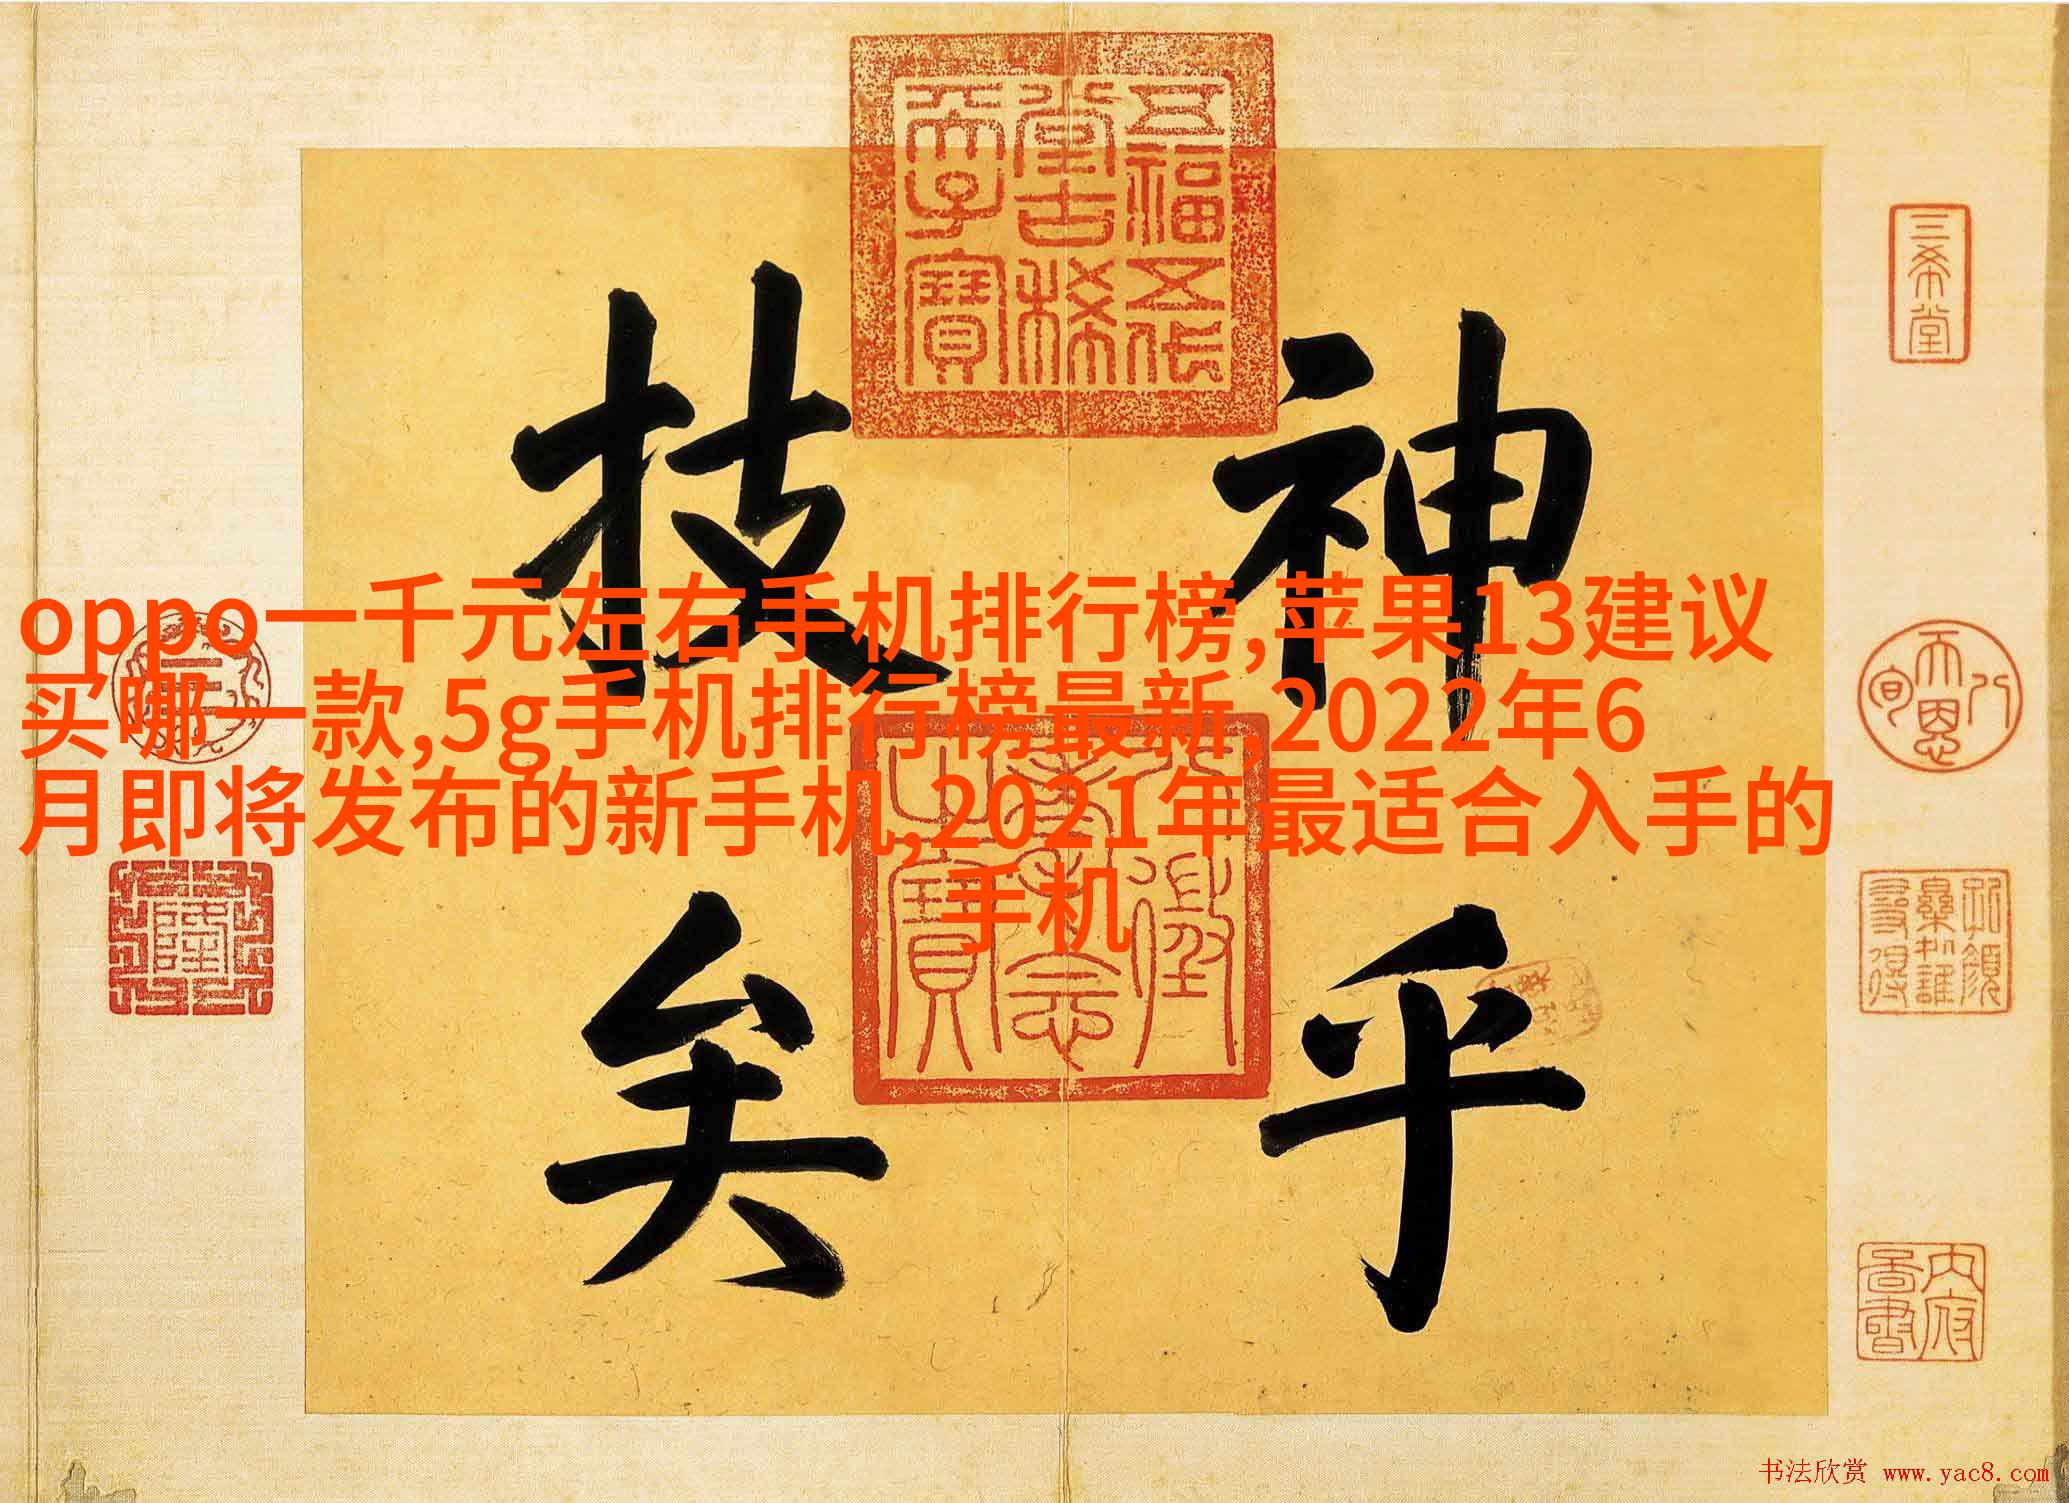 五福五代
堂古稀
天子寶
三希堂
神乎
技矣
oppo一千元左右手机排行榜,苹果13建议
买哪一款,5g手机排行榜最新,2022年6
月即将发布的新手机,2021年最适合入手的
手机
八徵
耄念
之寶
天恩
八旬
書法欣赏 www.yac8.com